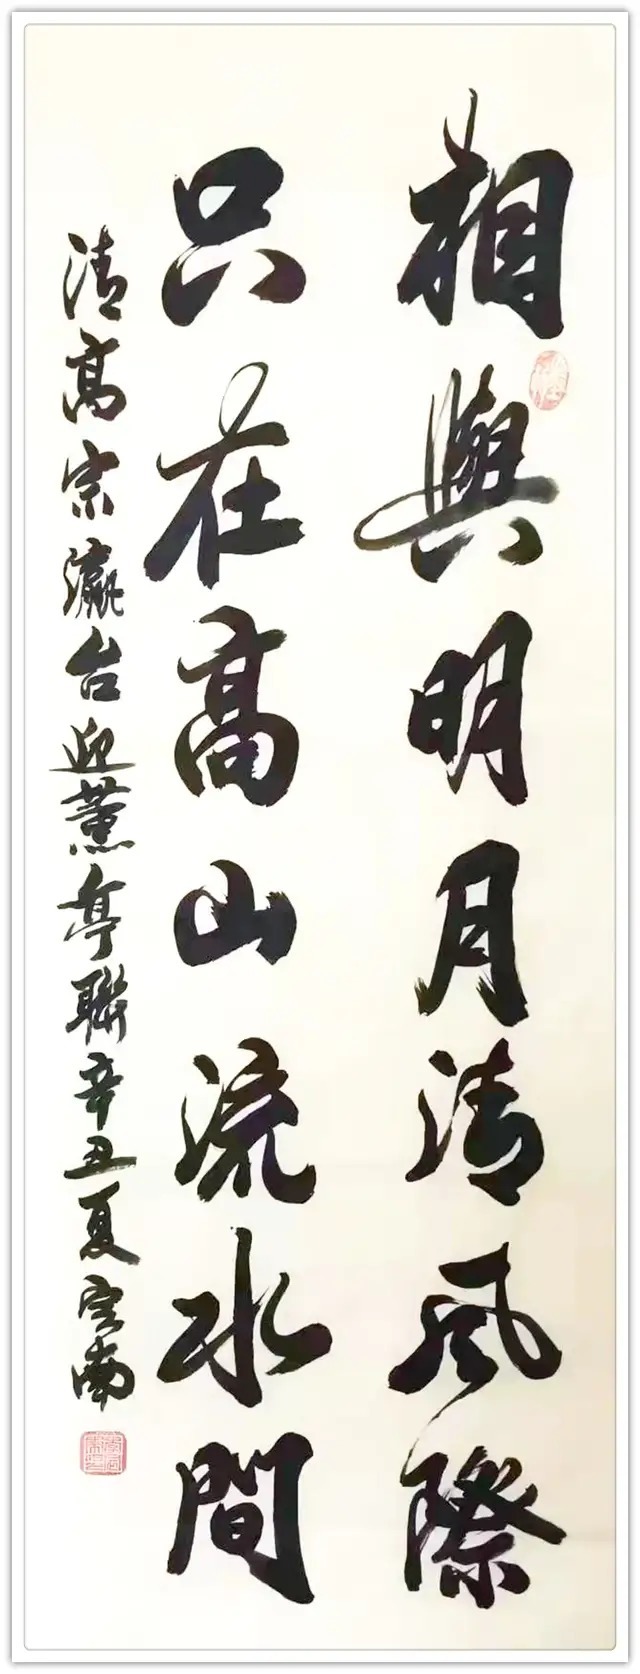 相與明月清風際
只在高山流水間
清高宗瀛台迎薰亭聯辛丑夏宏南